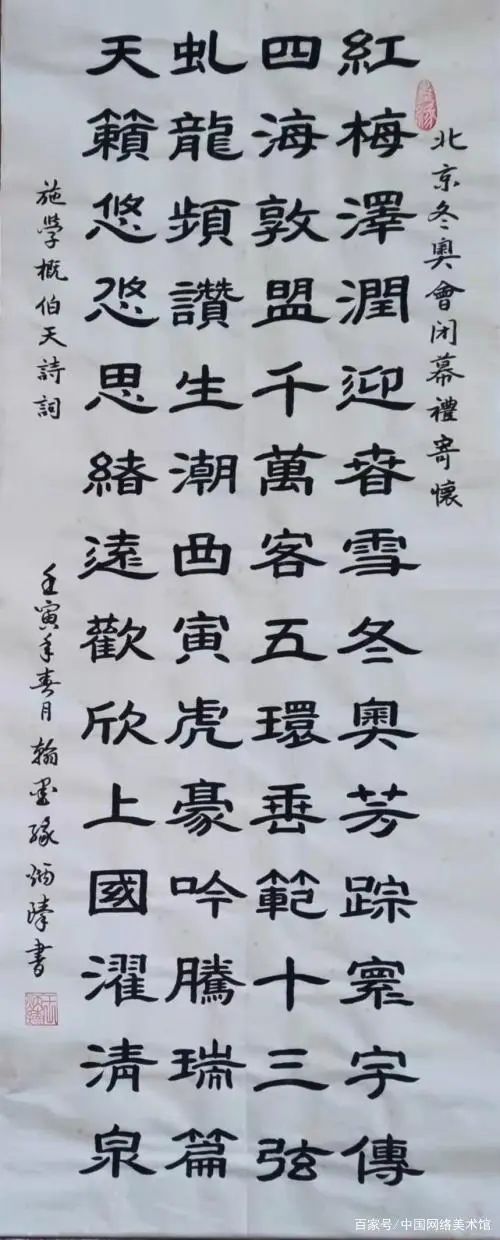 北京冬奧會闭幕禮寄懷
紅梅澤潤迎春雪冬奧芳踪寰宇傳
四海敦盟千萬客五環垂範十三弦
虬龍頻讚生潮曲寅虎豪吟騰瑞篇
天籟悠悠思緒遠歡欣上國濯清泉
施學概伯天詩詞
壬寅年春月翰墨緣炳 書
百家号/中国网络美术馆